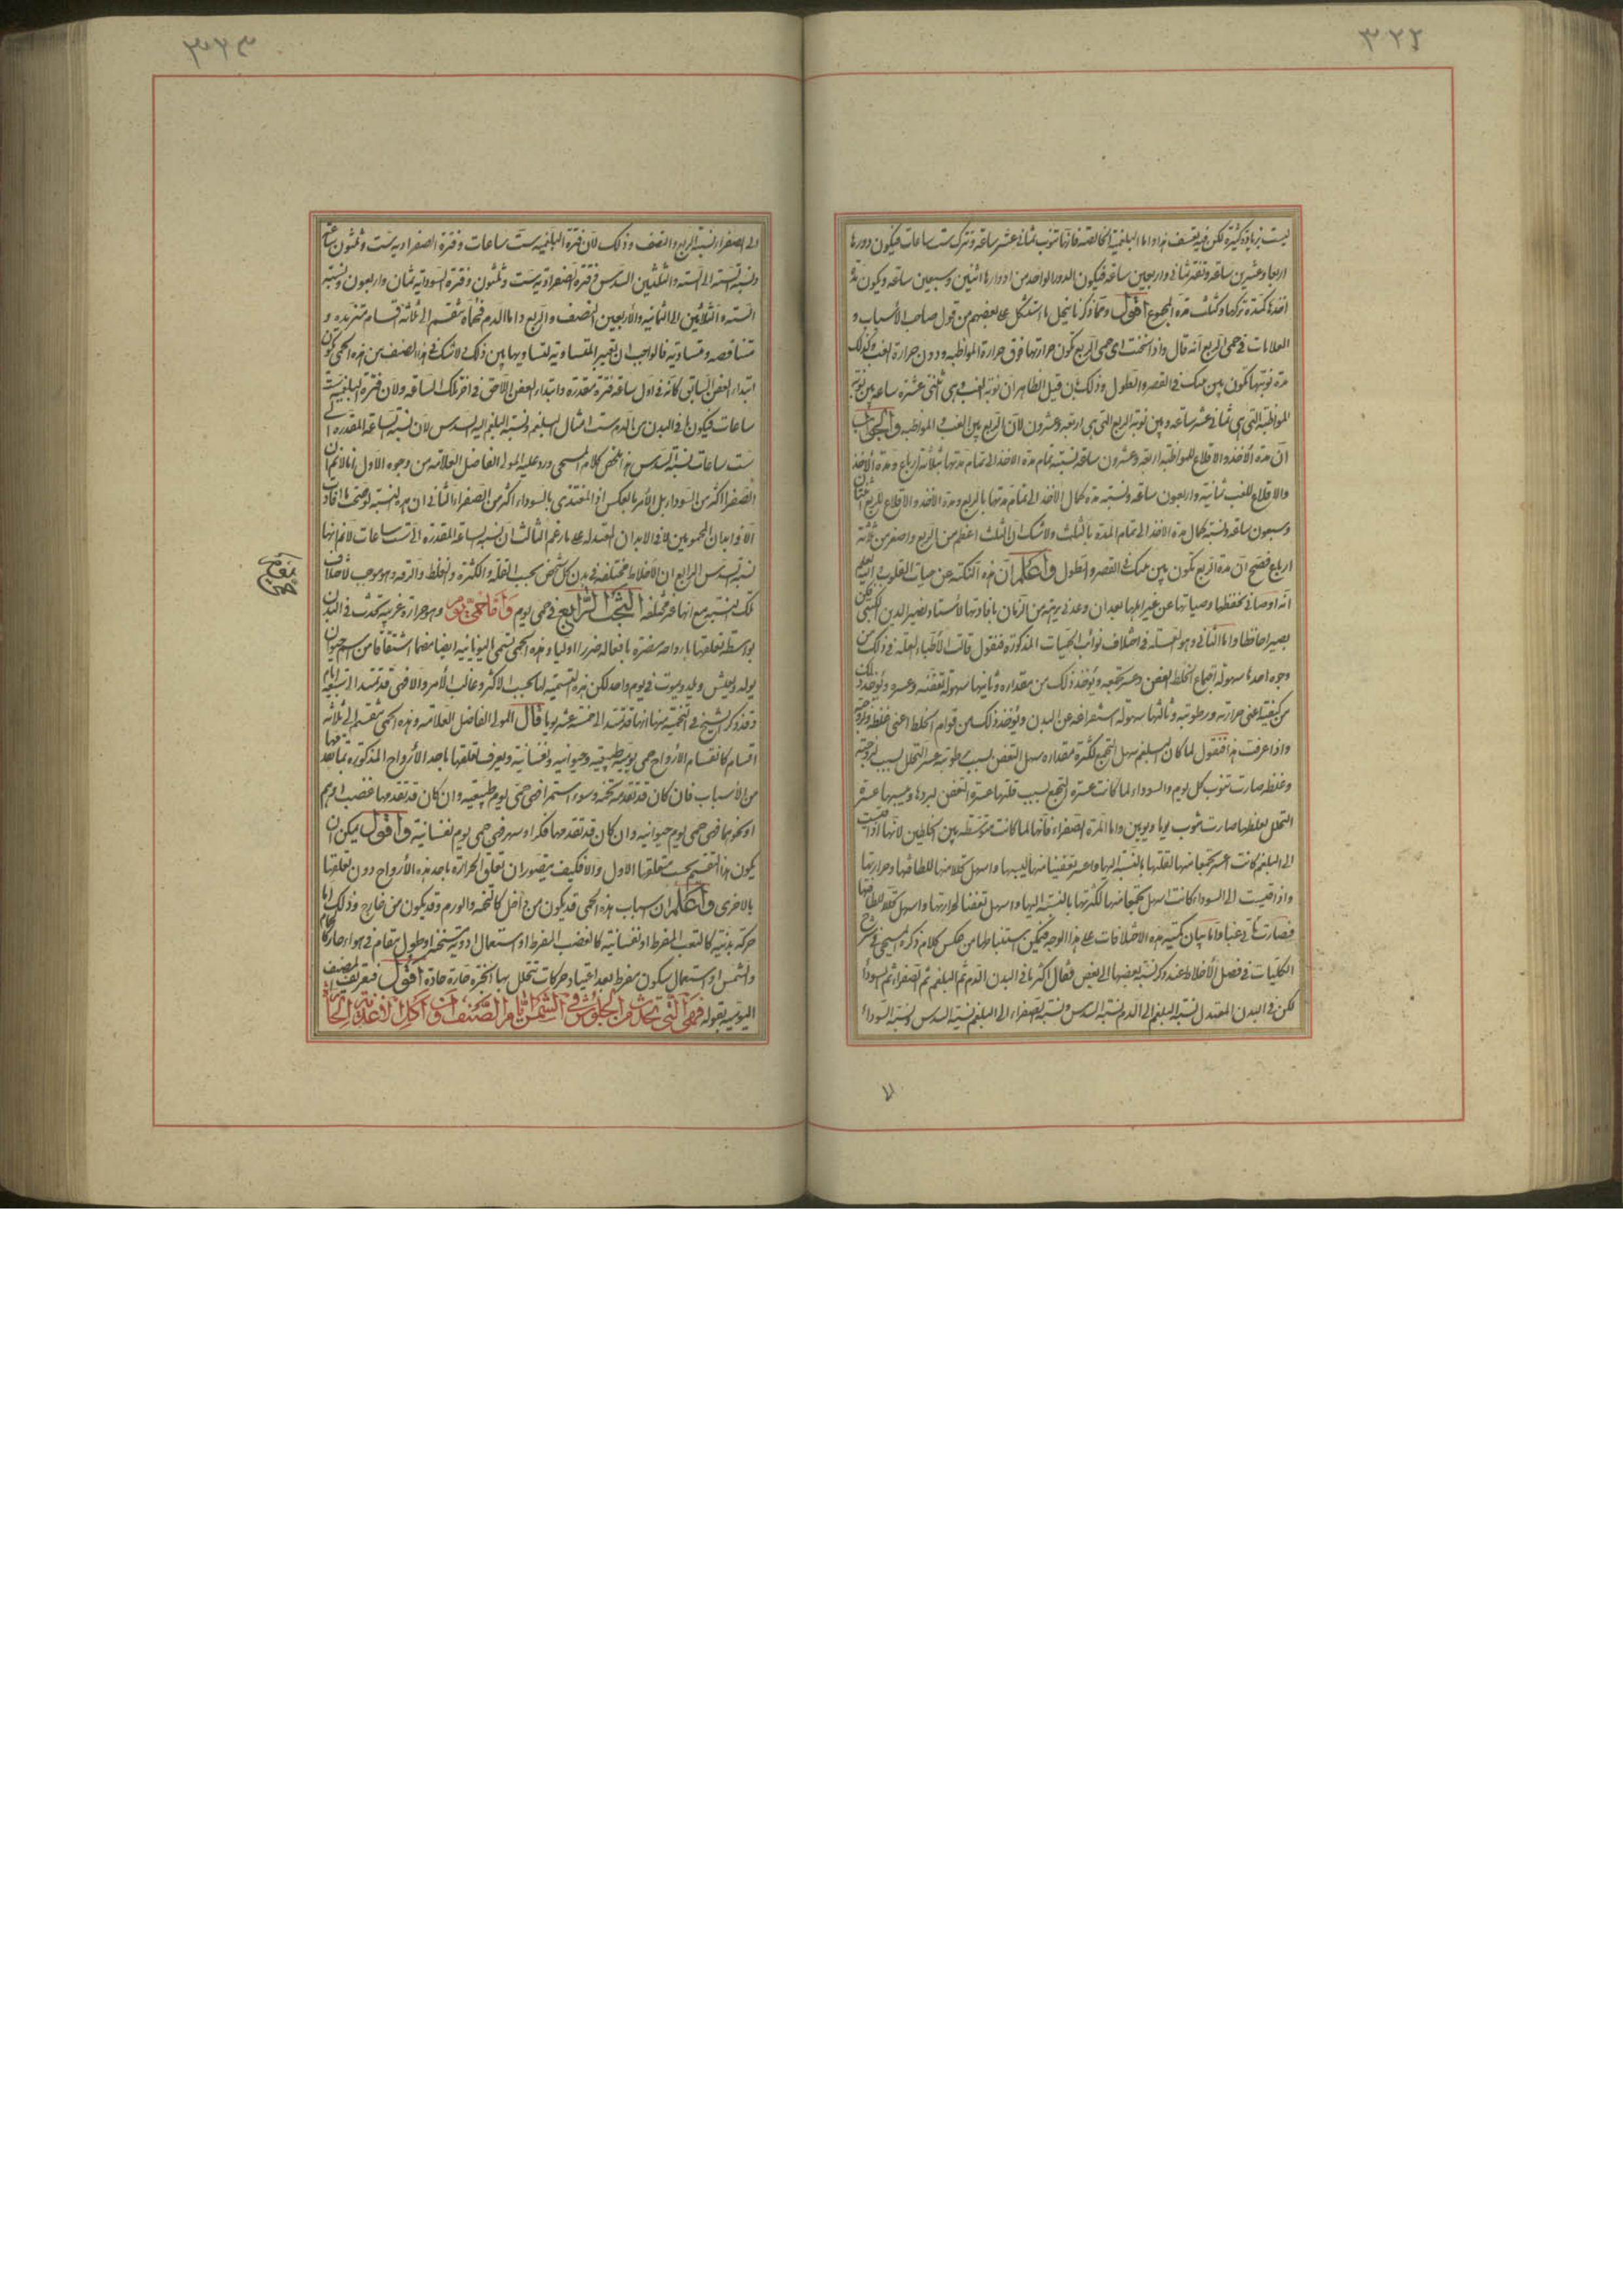 ٣٢٢
ليست بزيادة كثيرة لكن فيه تعسف هذا واما البلغمية الخالصة فانها تنوب ثمانى عشر ساعة وتترك ست ساعات فيكون دورها
اربعا وعشرين ساعة وتفتر ثمانى واربعين ساعة فيكون الدور الواحد من ادوارها اثنين وسبعين ساعة ويكون مدة
اخذها كمدة تركها وكثلث مدة المجموع اقول ومما ذكرنا ينحل ما استشكل على بعضهم من قول صاحب الأسباب و
العلامات فى حمى الربع انه قال واذا سخنت اى حمى الربع تكون حرارتها فوق حرارة المواظبة ودون حرارة الغب وكذلك
مدة نوبتها تكون بين بينك فى القصر والطول وذلك بان قيل الظاهر ان نوبة الغب هى اثنى عشرة ساعة بين نوبة
المواظبة التى هى ثمانى عشر ساعة وبين نوبة الربع التى هى اربعة وعشرون لان الربع بين الغب والمواظبة والجواب
ان مدة الأخذ والاقلاع للمواظبة اربعة وعشرون ساعة ونسبة تمام مدة الاخذ الى تمام مدتها ثلاثة ارباع ومدة الأخذ
والاقلاع للغب ثمانية واربعون ساعة ونسبة مدة كمال الأخذ الى تمام مدتها بالربع ومدة الاخذ والاقلاع للربع اثنان
وسبعون ساعة ونسبة كمال مدة الاخذ الى تمام المدة بالثلث ولا شك ان الثلث اعظم من الربع واصغر من ثلثة
ارباع فصح ان مدة الربع تكون بين بينك فى القصر والطول واعلم ان هذه النكتة من
انه اوصانى بحفظها وصيانتها عن غير اهلها بعد ان وعدنى برهة من الزمان بافادتها الأستاد نصير الدين
بصيرا حافظا واما الثانى وهو العلة فى اختلاف نوائب الحميات المذكورة فنقول قالت الأطباء العلة فى ذلك من
وجوه احدها سهولة اجتماع الخلط العفن وعسر تجمعه ويؤخذ ذلك من مقداره وثانيها سهولة تعفنه وعسره ويؤخذ ذلك
من كيفيته اعنى حرارته ورطوبته وثالثها سهولة استفراغه عن البدن ويؤخذ ذلك من قوام الخلط اعنى غلظه ولزوجته
واذا عرفت هذا فنقول لما كان البلغم سهل التجمع لكثرة مقداره سهل التعفن بسبب رطوبته عسر التحلل بسبب لزوجته
وغلظه صارت تنوب كل يوم والسوداء لما كانت عسرة التجمع بسبب قلتها عسرة التعفن لبردها ويبسها عسرة
التحلل لغلظها صارت تنوب يوما ويومين واما المرة الصفراء فانها لما كانت متوسطة بين الخلطين لانها اذا قيست
الى البلغم كانت اعسر تجمعا منها لقلتها بالنسبة اليها واعسر تعفنا منها ليبسها واسهل تحللا منها للطافتها وحرارتها
واذا قيست الى السوداء كانت اسهل تجمعا منها لكثرتها بالنسبة اليها واسهل تعفنا لحرارتها واسهل تحللا للطافتها
فصارت غبا واما بيان كمية هذه الاختلافات على هذا الوجه فيمكن استنباطها من كلام ذكره المسيحى فى شرح
الكليات فى فصل الأخلاط عند ذكر نسبة بعضها الى بعض فقال اكثر ما فى البدن الدم ثم البلغم ثم الصفراء ثم السوداء
لكن فى البدن المعتدل نسبة البلغم الى الدم نسبة السدس ونسبة الصفراء الى البلغم نسبة السدس ونسبة السوداء
٣٢٣
الى الصفراء نسبة الربع والنصف وذلك لان فترة البلغمية ست ساعات وفترة الصفراوية ست وثلثون ساعة
ونسبة الستة الى الستة والثلثين السدس وفترة الصفراوية ست وثلثون وفترة السوداوية ثمان واربعون ونسبة
الستة والثلاثين الى الثمانية والأربعين النصف والربع واما الدم فحماه تنقسم الى ثلاثة اقسام متزيدة و
متناقصة ومتساوية فالواجب ان تعتبر المتساوية لتساويها بين ذلك لا شك فى هذا الصنف من هذه الحمى يكون
ابتداء العفن السابق كانه فى اول ساعة فترة مقدرة وابتداء العفن اللاحق فى اخر تلك الساعة ولان فترة البلغمية ست
ساعات فيكون ما فى البدن من الدم ست امثال البلغم ونسبة البلغم اليه السدس لان نسبة الساعة المقدرة الى
ست ساعات نسبة السدس هذا ملخص كلام المسيحى ورد عليه المولى الفاضل العلامة من وجوه الاول انا لا نم ان
الصفراء اكثر من السوداء بل الأمر بالعكس اذ المغتذى بالسوداء اكثر من الصفراء الثانى ان هذه النسبة لو صحت ما افادت
الا فى ابدان المحمومين لا فى الابدان المعتدلة على ما زعم الثالث ان نسبة الساعة المقدرة الى ست ساعات لا نم انها
نسبة السدس الرابع ان الاخلاط مختلفة فى بدن كل شخص بحسب القلة والكثرة والغلظ والرقة وهو موجب لاختلاف
تلك النسبة مع انها غير مختلفة البحث الرابع فى حمى يوم واما حمى يوم وهو حرارة غريبة تحدث فى البدن
بواسطة تعلقها بارواحه مضرة بافعاله ضررا اوليا وهذه الحمى تسمى اليونانية ايضا اشتقاقا من اسم حيوان
يولد ويعيش ويموت فى يوم واحد لكن هذه التسمية لها بحسب الاكثر وغالب الأمر والا فهى قد تمتد الى سبعة ايام
وقد ذكر الشيخ فى التخمية منها انها قد تمتد الى خمسة عشر يوما قال المولى الفاضل العلامة وهذه الحمى تنقسم الى ثلاثة
اقسام كانقسام الأرواح حمى يومية طبيعية وحيوانية ونفسانية ويعرف تعلقها باحد الأرواح المذكورة بما تقدمها
من الأسباب فان كان قد تقدمه تخمة وسوء استمراء فهى حمى يوم طبيعية وان كان قد تقدمها غضب او هم
او نحوهما فهى حمى يوم حيوانية وان كان قد تقدمها فكر او سهر فهى حمى يوم نفسانية واقول يمكن ان
يكون هذا التقسيم بحسب متعلقها الاول والا فكيف يتصور ان تعلق الحرارة باحد هذه الأرواح دون تعلقها
بالاخرى واعلم ان اسباب هذه الحمى قد يكون من داخل كالتخمة والورم وقد يكون من خارج وذلك اما
حركة بدنية كالتعب المفرط او نفسانية كالغضب المفرط او استعمال ادوية مسخنة او طول مقام فى هواء حار كالحمام
والشمس او استعمال سكون مفرط بعد اعتياد حركات تتحلل بها ابخرة حارة حادة اقول فتعريف المصنف
اليومية بقوله فهى التى تحدث من الجلوس فى الشمس ايام الصيف او اكل الاغذية الحارة